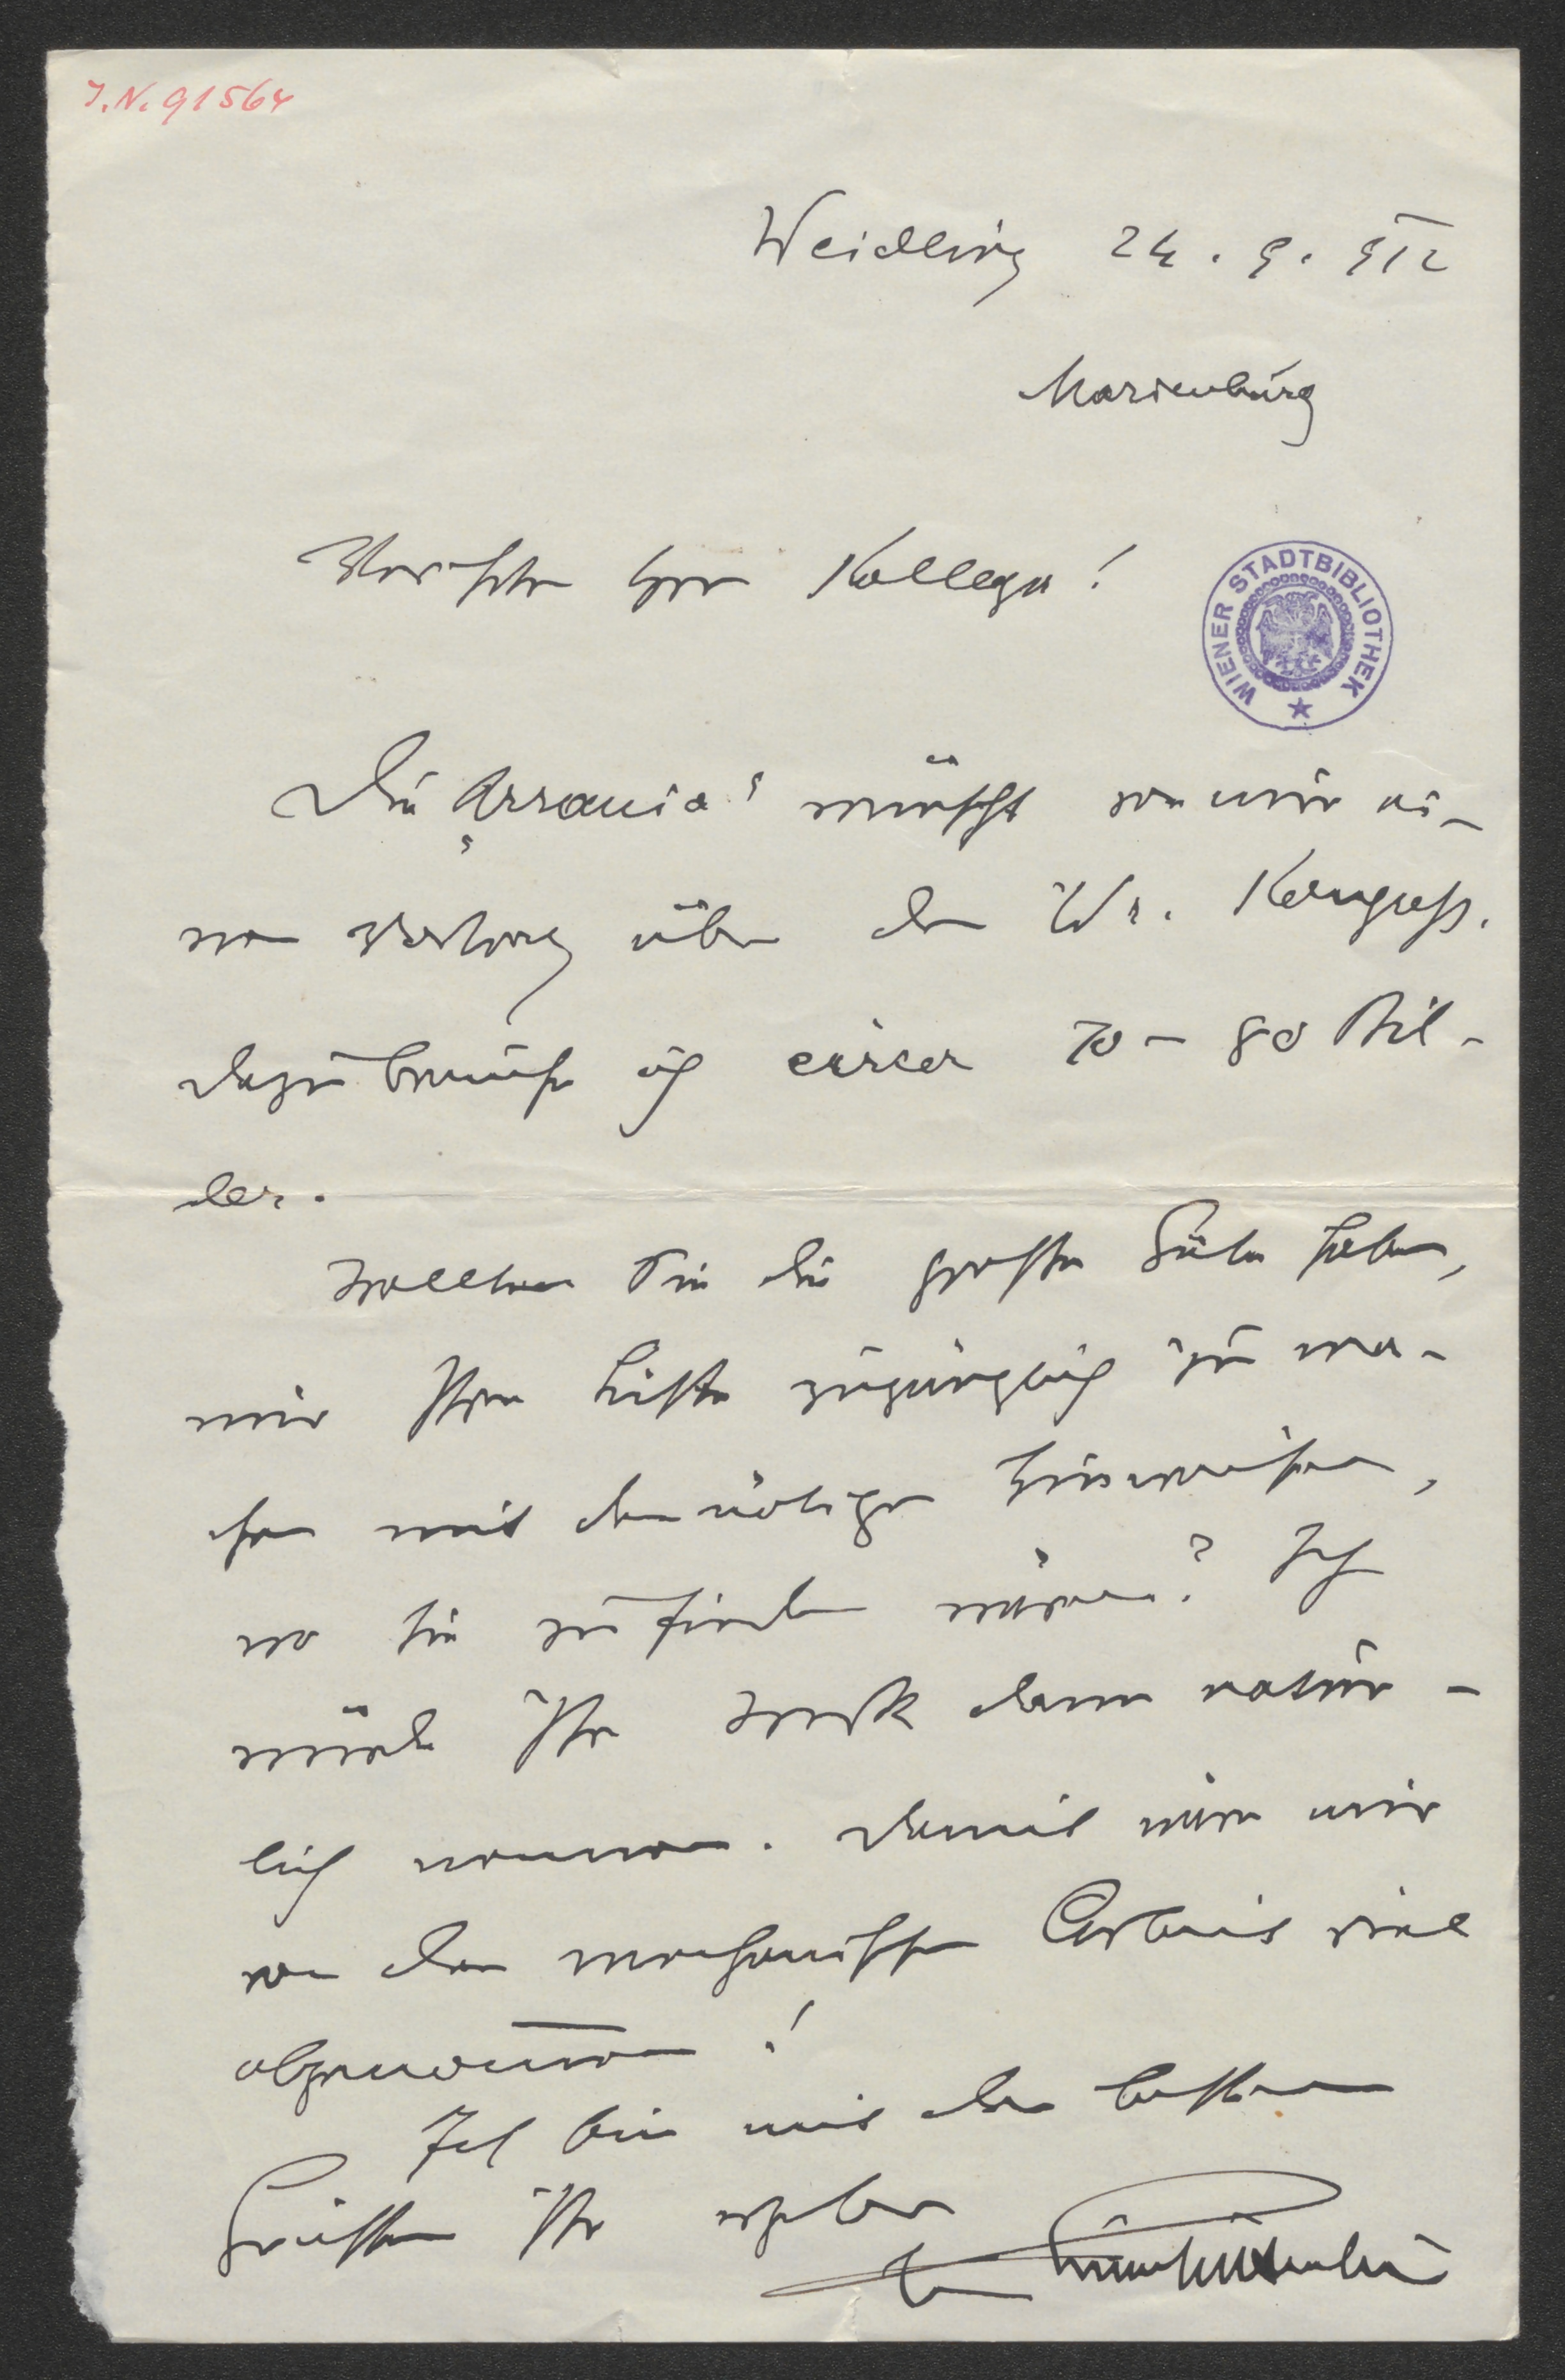 J.N. 91564
Weidling 24. 9. 912
Marienburg
Verehrter Herr Kollega!
WIENER STADTBIBLIOTHEK
Die „Urania“ wünscht von mir ei-
nen Vortrag über den Wr. Kongreß.
Dazu brauche ich circa 70 – 80 Bil-
der.
Wollten Sie die große Güte haben,
mir Ihre Liste zugänglich zu ma-
chen mit den nötigen Hinweisen,
wo sie zu finden wären? Ich
würde Ihr Werk dann natür-
lich nennen. Damit wäre mir
von der mechanischen Arbeit viel
abgenommen!
Ich bin mit den besten
Grüßen Ihr ergebener